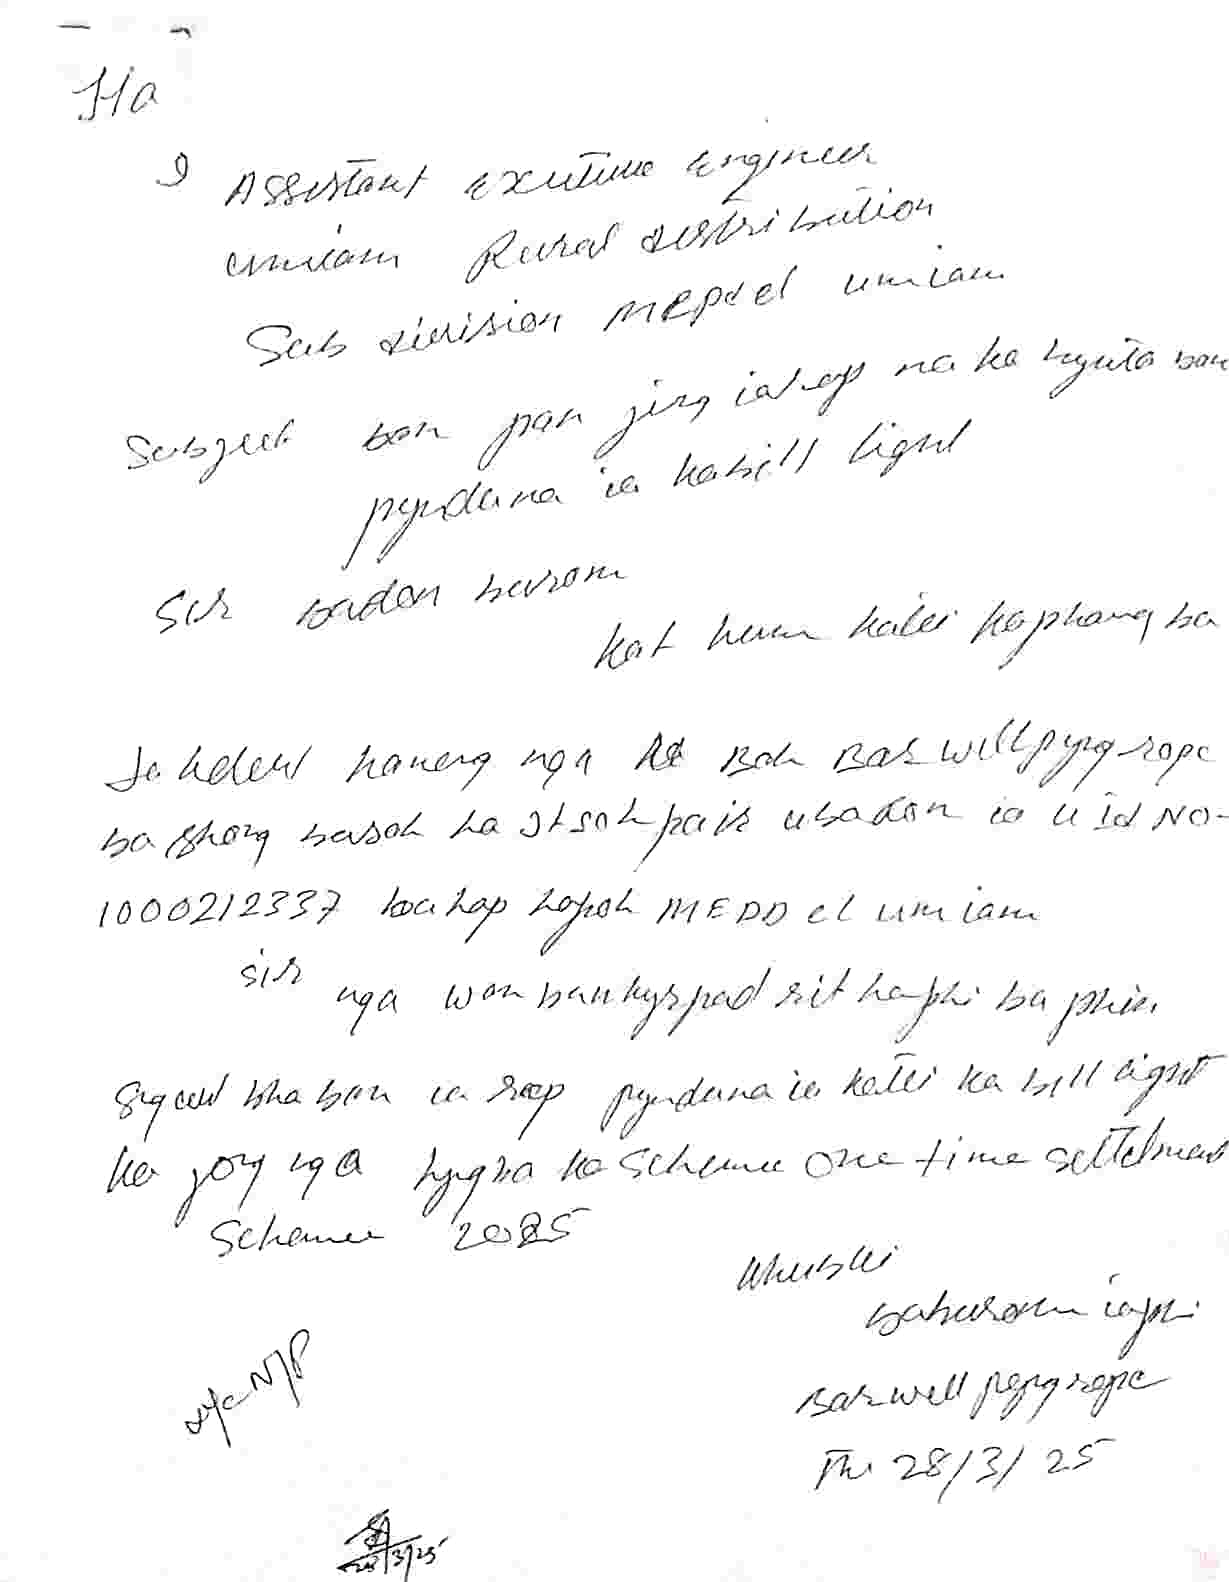 Ha
I Assistant Exutive Engineer
Umiam Rural Distribution
Sub Division MEPDCL Umiam
Subject ban pan jing iarap na ka bynta ban
pynduna ia ka bill light
Sir badon burom
Kat kum katei kaphang ba
la kdew haneng nga Bah Barwell pyngrope
ba shong basah ha Itsohpair ubadon ia u Id NO-
1000212337 ba hap hapoh MEDD cl umiam
Sir nga wan ban kyrpad rit ha phi ba phin
sngewbha ban ia rap pynduna ia katei ka bill light
ka jong nga lyngba ka scheme one time settelment
Scheme 2025
Khublei
baburom iaphi
Barwell pyngrope
The 28/3/25
28/3/25